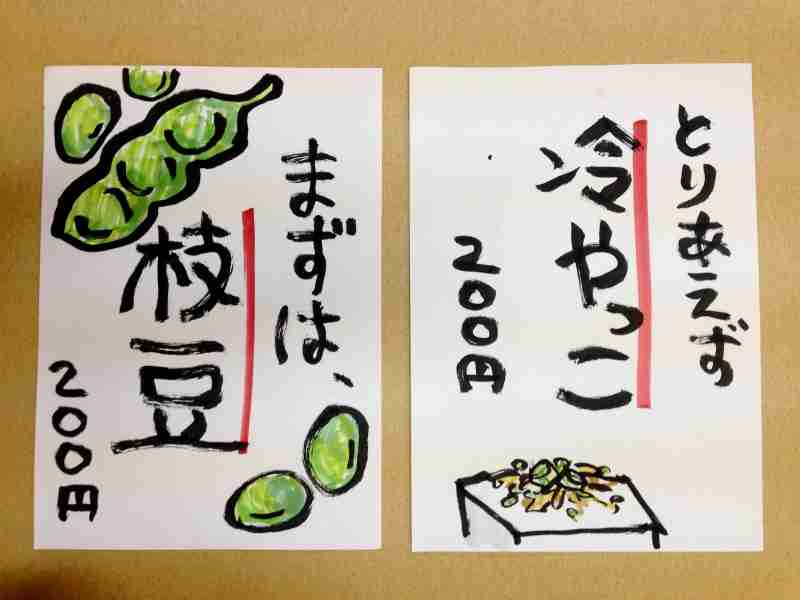 とりあえず
冷やっこ
200円
まずは、
枝豆
200円